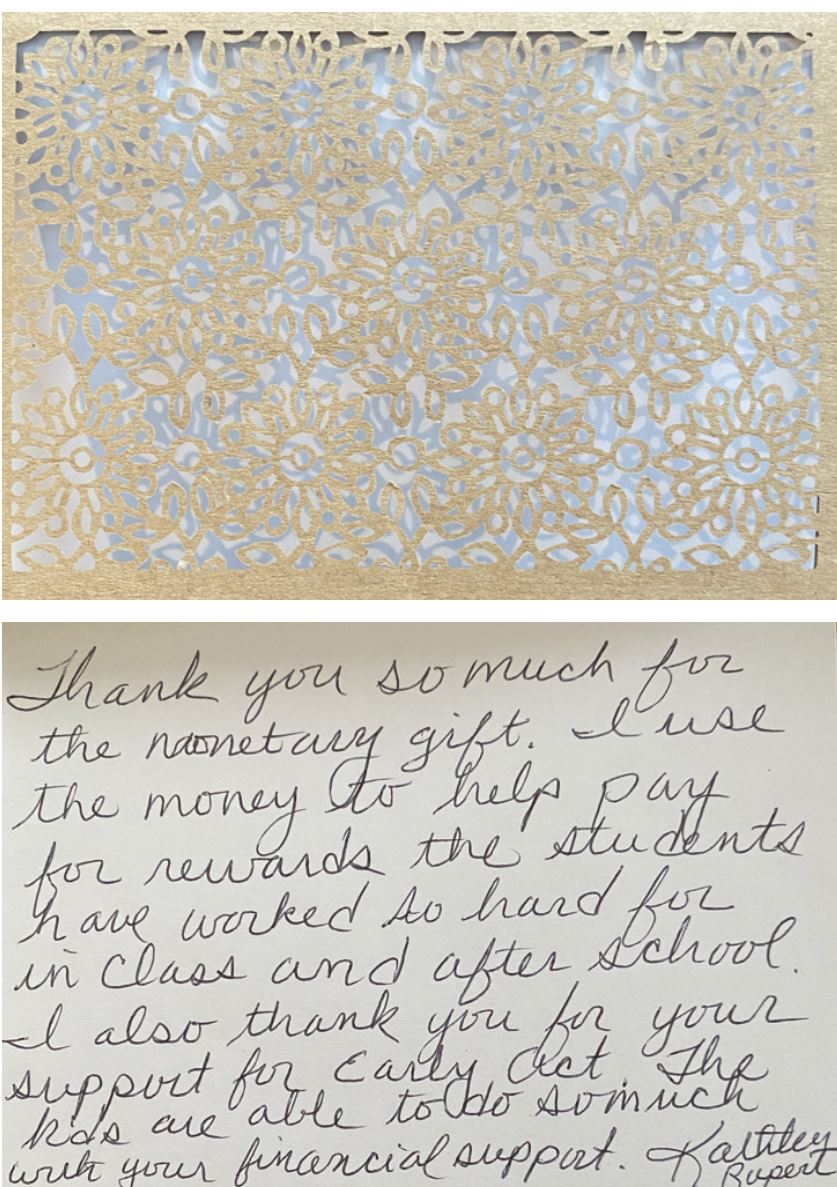 Thank you so much for
the monetary gift. I use
the money to help pay
for rewards the students
have worked so hard for
in class and after school.
I also thank you for your
support for Early Act. The
kids are able to do so much
with your financial support. Kathley
Rupert